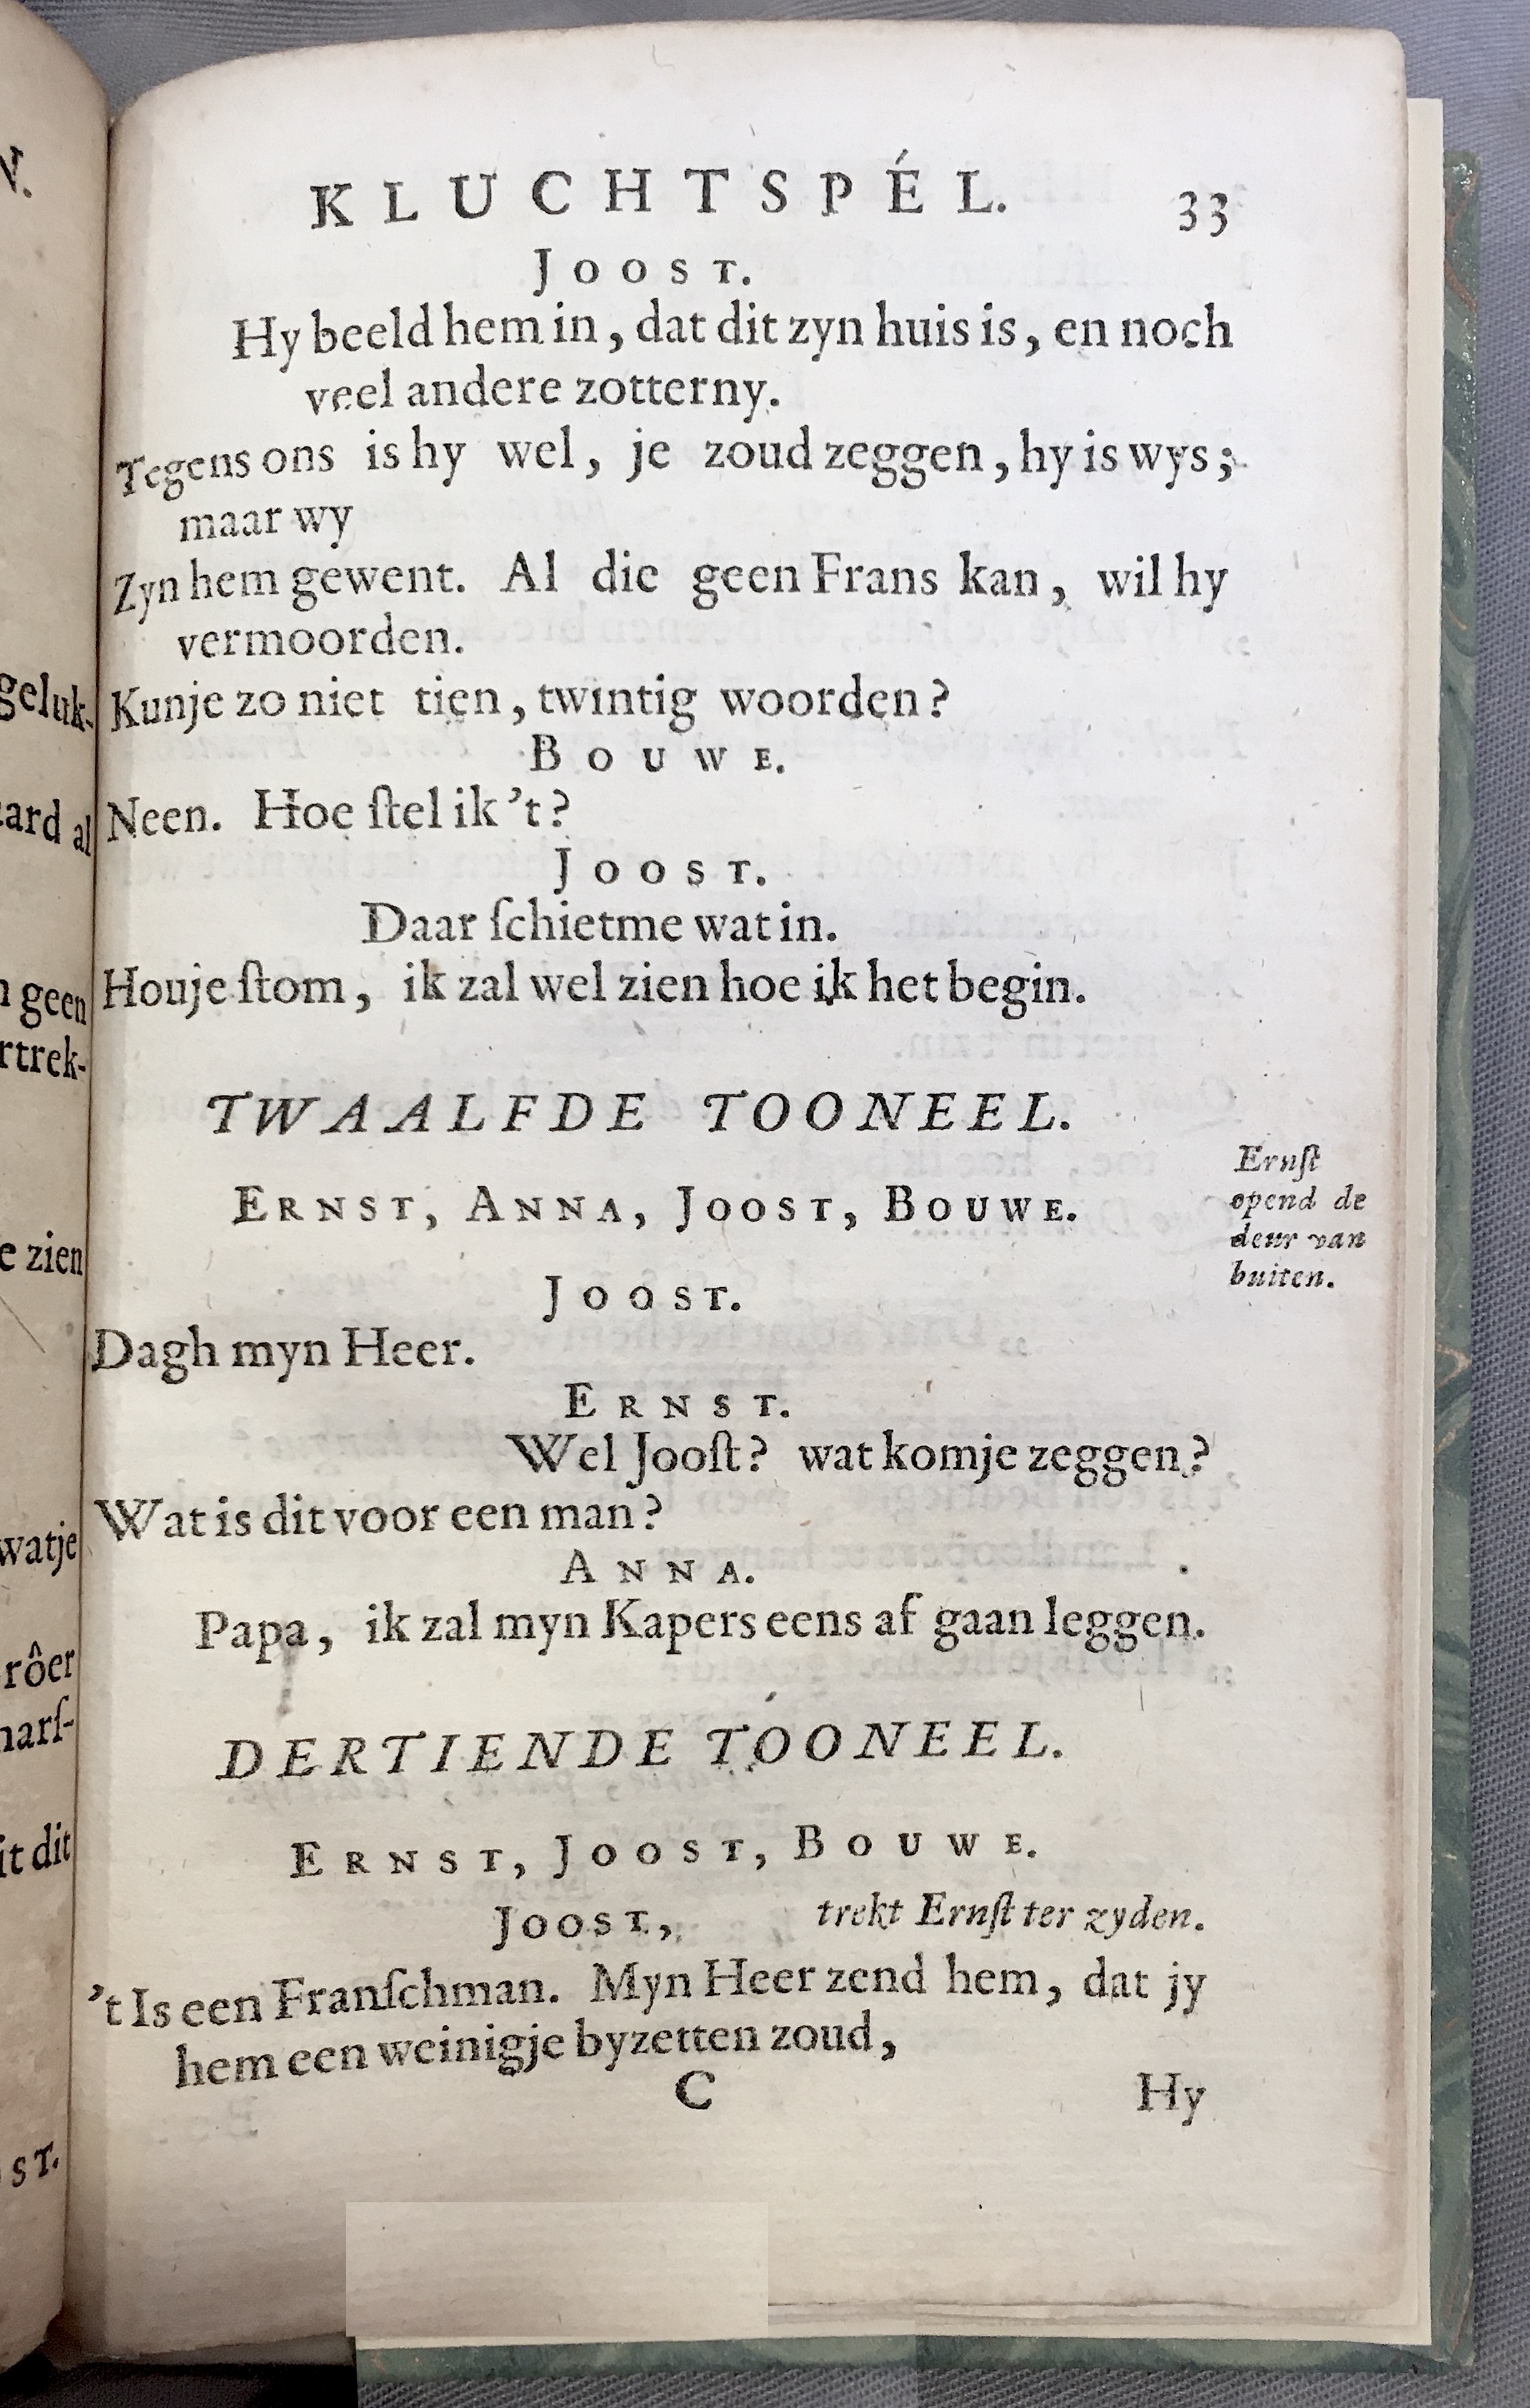 KLUCHTSPÉL. 33
JOOST.
Hy beeld hem in, dat dit zyn huis is, en noch
veel andere zotterny.
Tegens ons is hy wel, je zoud zeggen, hy is wys;
maar wy
Zyn hem gewent. Al die geen Frans kan, wil hy
vermoorden.
Kunje zo niet tien, twintig woorden?
BOUWE.
Neen. Hoe ſtel ik 't?
JOOST.
Daar ſchietme wat in.
Houje ſtom, ik zal wel zien hoe ik het begin.
TWAALFDE TOONEEL.
ERNST, ANNA, JOOST, BOUWE.
Ernſt
opend de
deur van
buiten.
JOOST.
Dagh myn Heer.
ERNST.
Wel Jooſt? wat komje zeggen?
Wat is dit voor een man?
ANNA.
Papa, ik zal myn Kapers eens af gaan leggen.
DERTIENDE TOONEEL.
ERNST, JOOST, BOUWE.
JOOST, trekt Ernſt ter zyden.
't Is een Franſchman. Myn Heer zend hem, dat jy
hem een weinigje byzetten zoud,
C Hy
N.
geluk-
al
geen
rtrek-
zien
watje
rôer
it dit
ST.